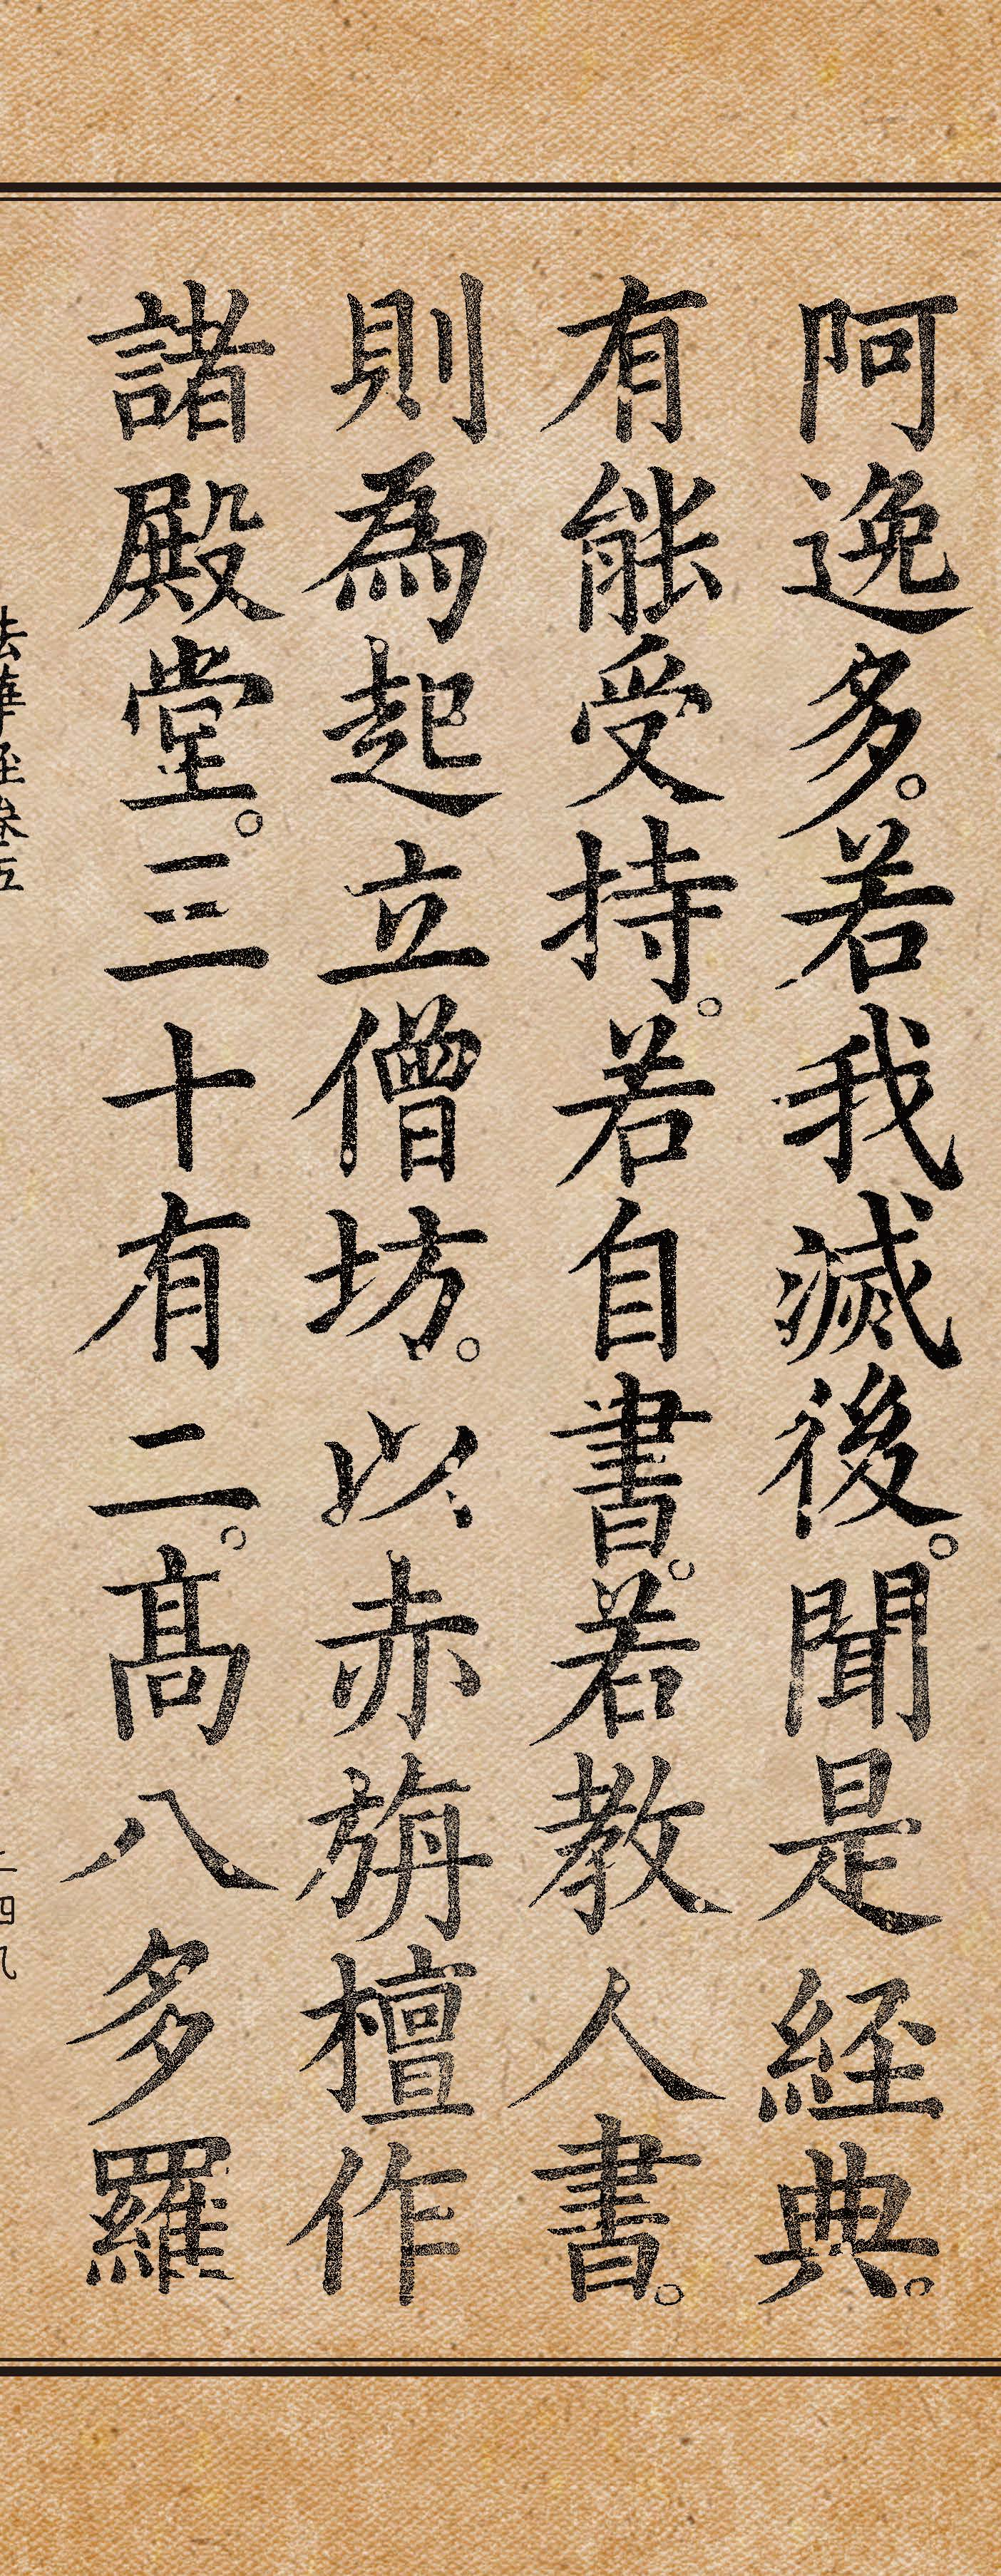 阿逸多。若我滅後。聞是經典。
有能受持。若自書。若教人書。
則為起立僧坊。以赤旃檀作
諸殿堂。三十有二。高八多羅
法華經卷五
二四九